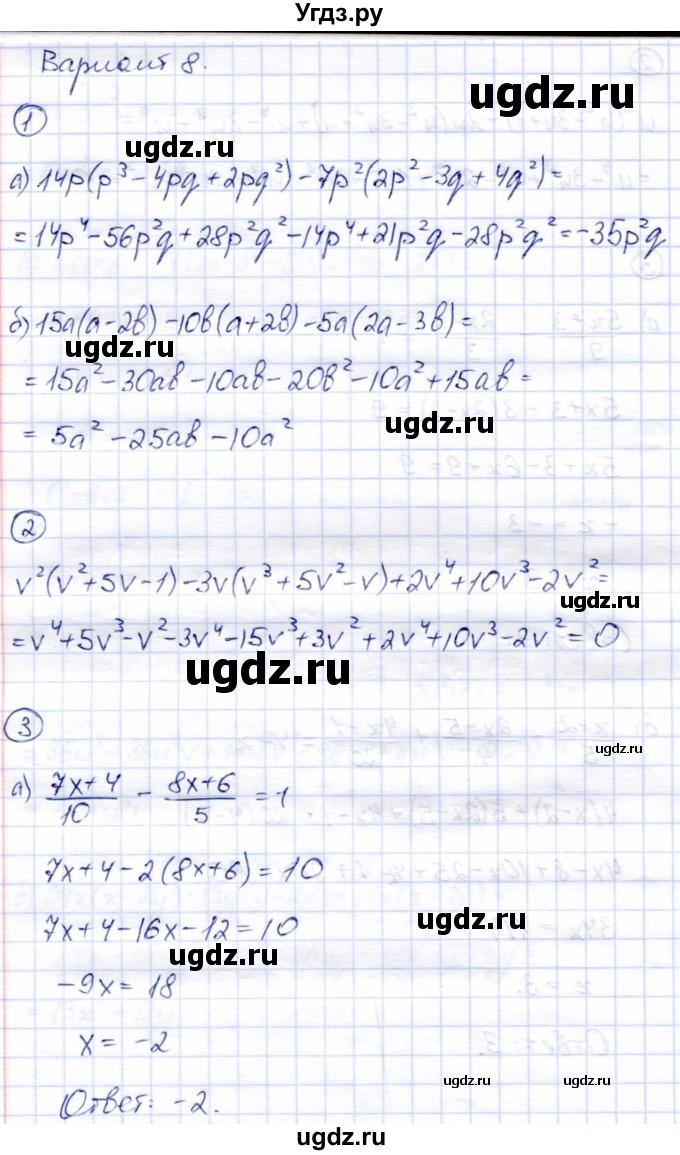 Угдз.ру
Вариант 8.
ugdz.ru
1
ugdz.ru
а) 14p(p³ - 4pq + 2pq²) - 7p²(2p² - 3q + 4q²) =
= 14p⁴ - 56p²q + 28p²q² - 14p⁴ + 21p²q - 28p²q² = -35p²q
б) 15а(а - 2в) - 10в(а + 2в) - 5а(2а - 3в) =
ugdz.ru
= 15а² - 30ав - 10ав - 20в² - 10а² + 15ав =
ugdz.ru
= 5а² - 25ав - 10а²
2
v²(v² + 5v - 1) - 3v(v³ + 5v² - v) + 2v⁴ + 10v³ - 2v² =
ugdz.ru
= v⁴ + 5v³ - v² - 3v⁴ - 15v³ + 3v² + 2v⁴ + 10v³ - 2v² = 0
ugdz.ru
3
ugdz.ru
а) (7x+4)/10 - (8x+6)/5 = 1
7x + 4 - 2(8x + 6) = 10
ugdz.ru
7x + 4 - 16x - 12 = 10
ugdz.ru
-9x = 18
x = -2
ugdz.ru
Ответ: -2.
ugdz.ru